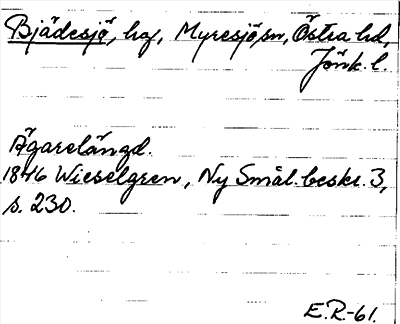 Bjädesjö, hg, Myresjö sn, Östra hd,
Jönk. l.
Ägarelängd.
1846 Wieselgren, Ny Smål. beskr. 3,
s. 230.
E.R.-61.